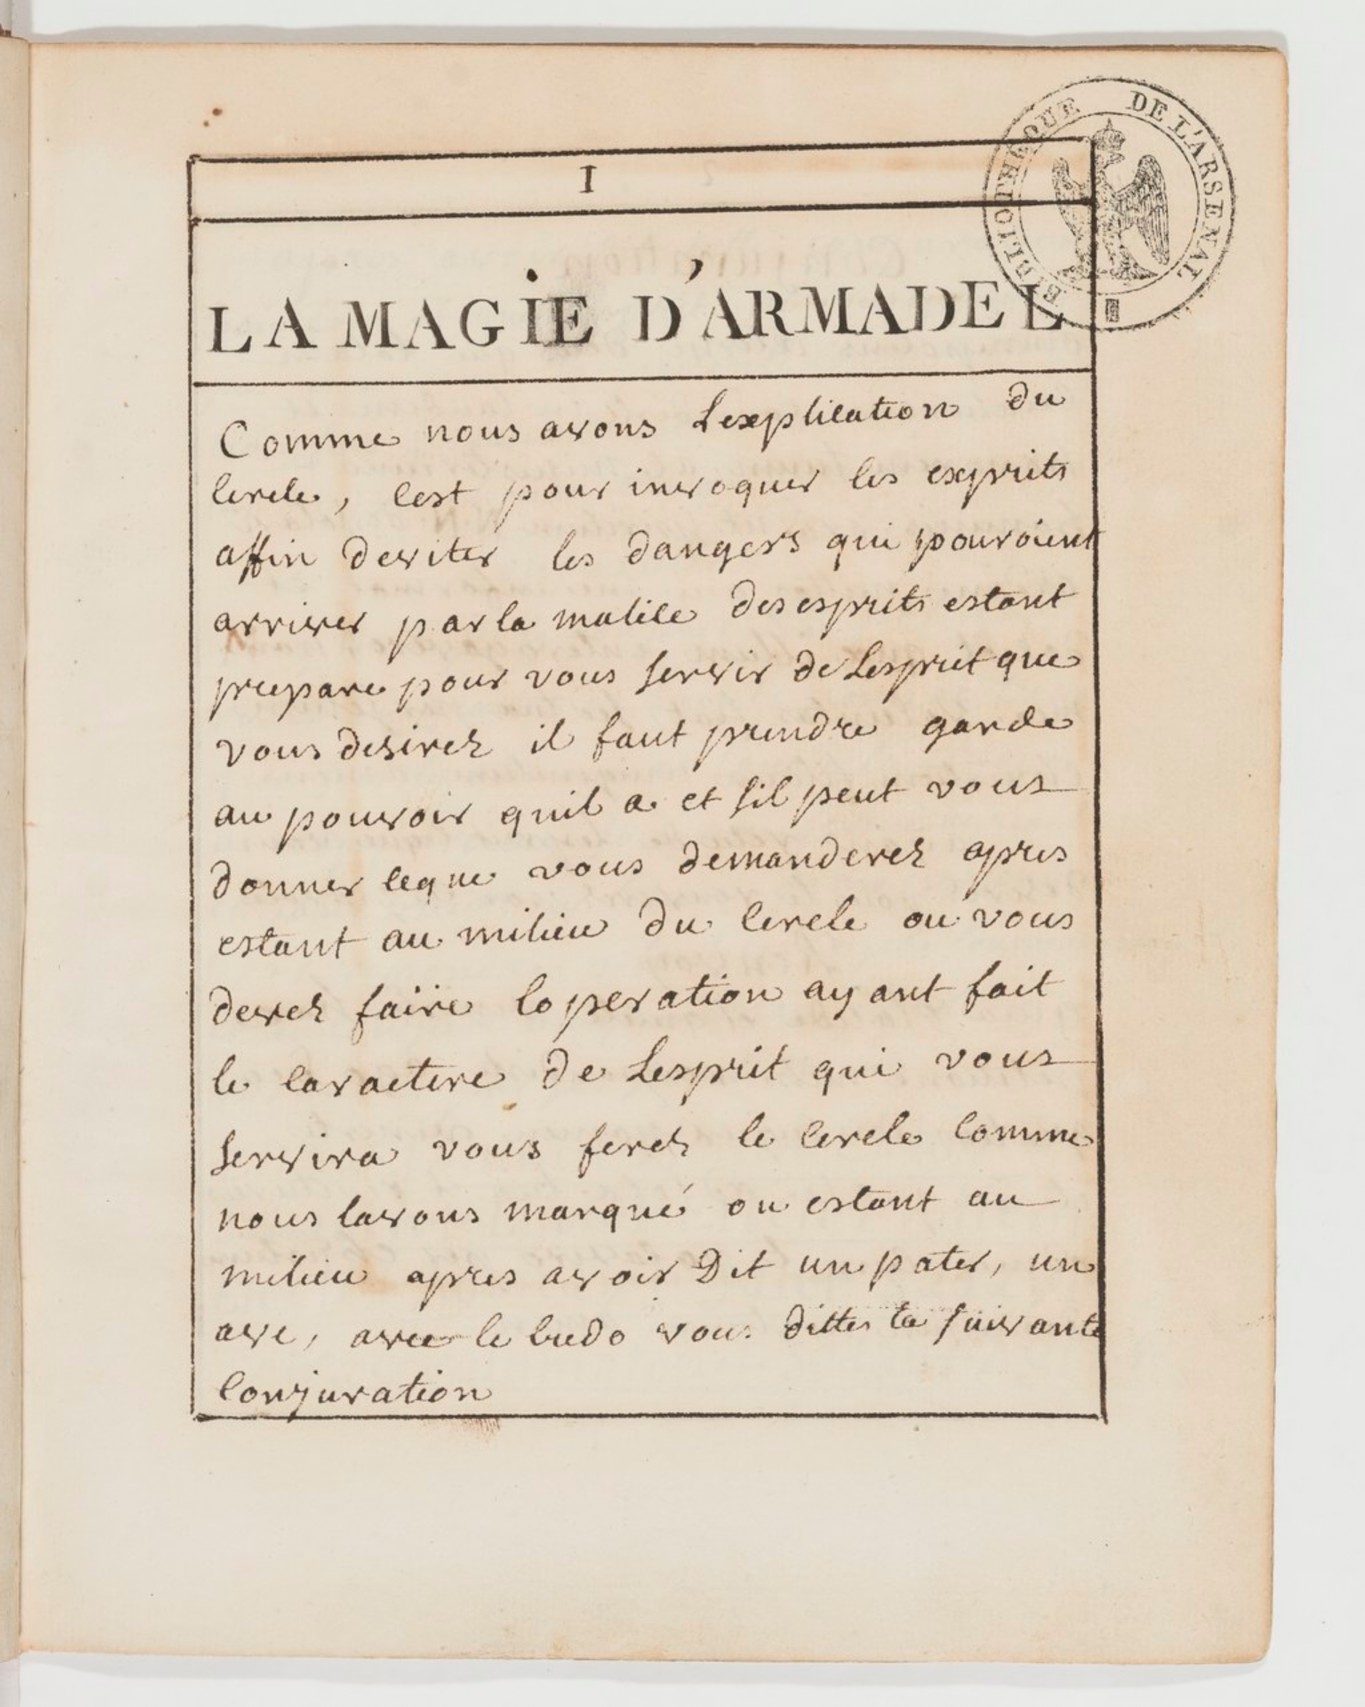 BIBLIOTHÈQUE DE L'ARSENAL
I
LA MAGIE D'ARMADEL
Comme nous avons Lexplication du
cercle, cest pour invoquer les exprits
affin deviter les dangers qui pouroient
arriver par la malice des esprits estant
prepare pour vous servir de Lesprit que
vous desirez il faut prendre garde
au pouvoir quil a et sil peut vous
donner ceque vous demanderez apres
estant au milieu du cercle ou vous
devez faire loperation ayant fait
le caractere de Lesprit qui vous
servira vous ferez le cercle comme
nous lavons marqué ou estant au
milieu apres avoir Dit un pater, un
ave, avec le credo vous dittes la suivante
conjuration